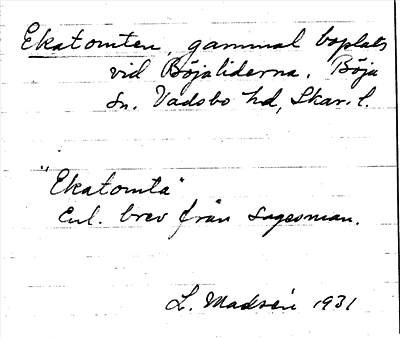 Ekatomten, gammal boplats
vid Böjaliderna. Böja
Sn. Vadsbo hd, Skar. l.
"Ekatomta"
Enl. brev från sagesman.
L. Madsén 1931